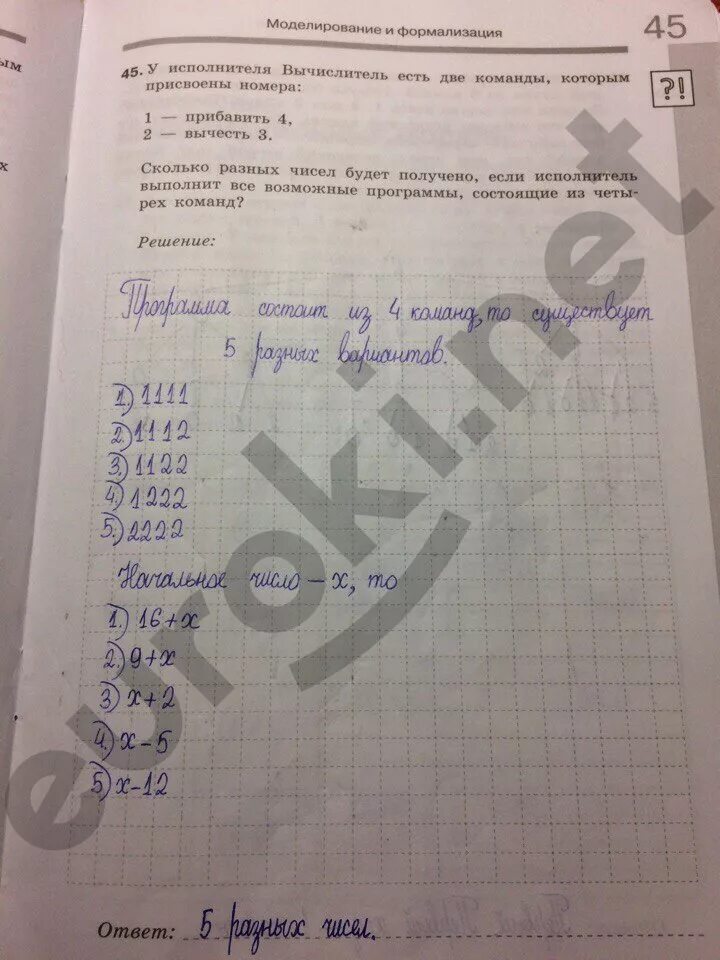 Моделирование и формализация
45
ым
х
?!
45. У исполнителя Вычислитель есть две команды, которым
присвоены номера:
1 — прибавить 4,
2 — вычесть 3.
Сколько разных чисел будет получено, если исполнитель
выполнит все возможные программы, состоящие из четы-
рех команд?
Решение:
Программа состоит из 4 команд, то существует
5 разных вариантов.
1.) 1111
2.) 1112
3.) 1122
4.) 1222
5.) 2222
Начальное число – x, то
1.) 16+x
2.) 9+x
3) x+2
4.) x-5
5) x-12
Ответ: 5 разных чисел.
euroki.net